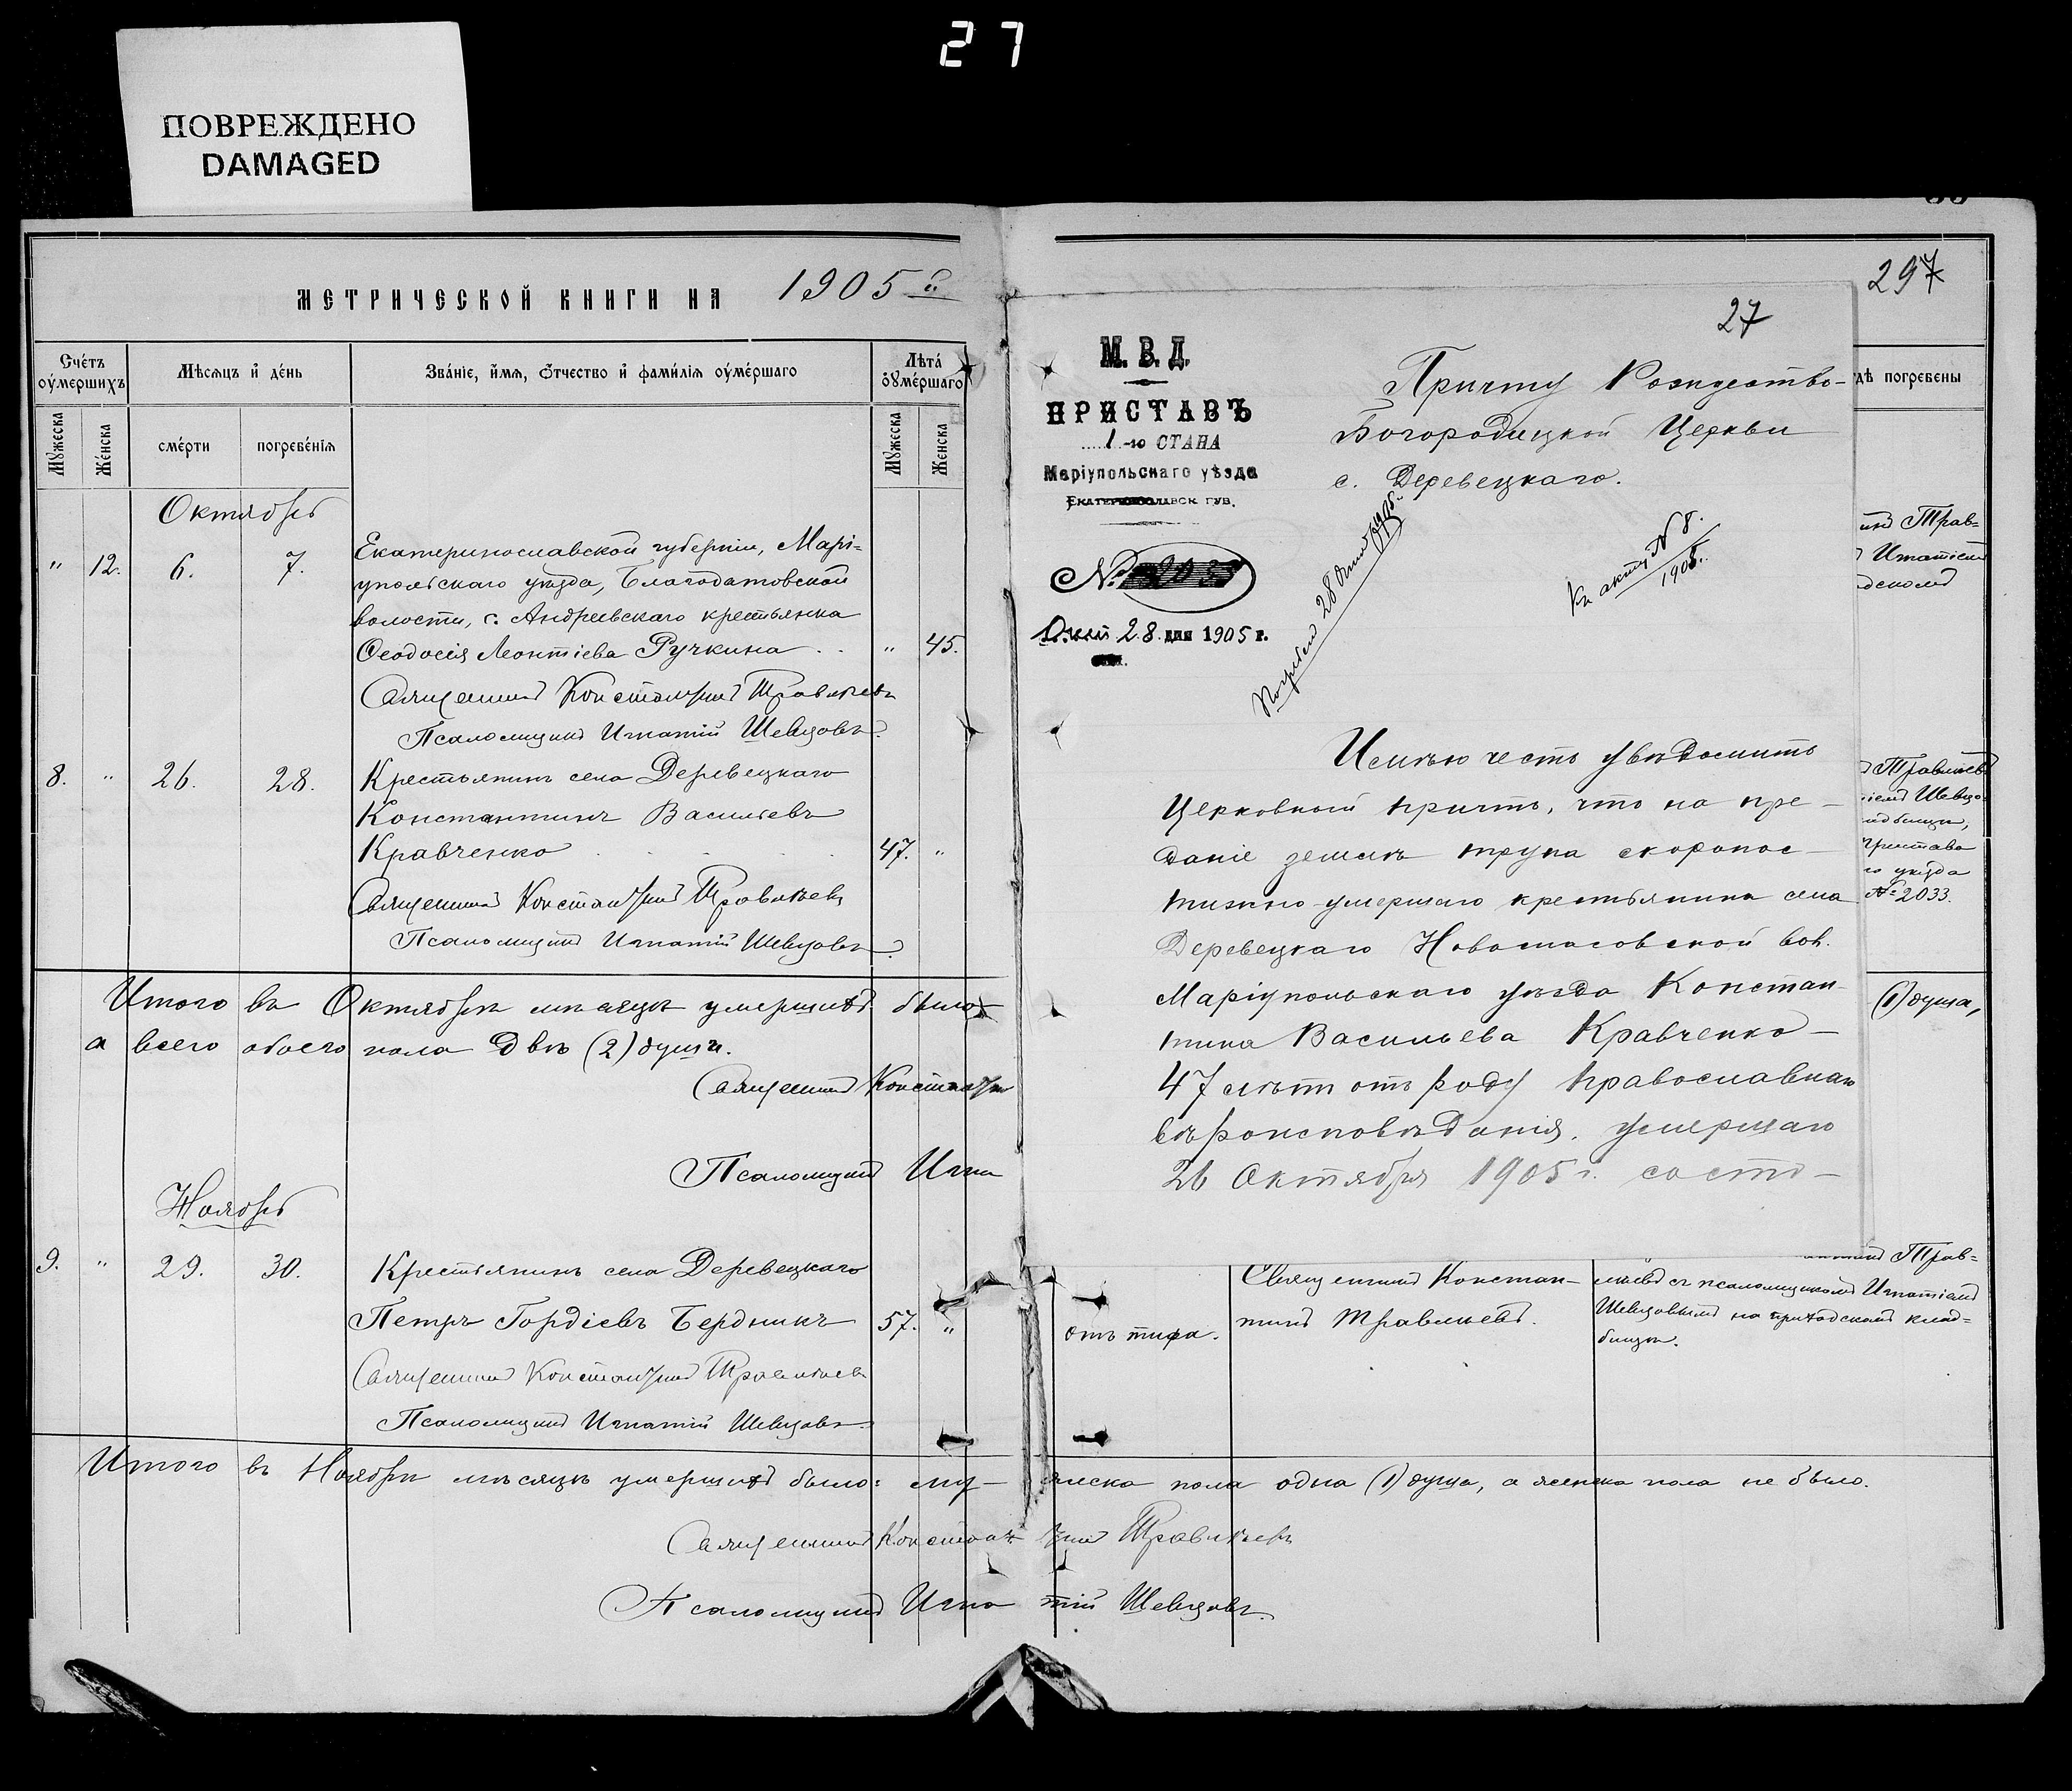 27
ПОВРЕЖДЕНО
DAMAGED
МЕТРИЧЕСКОЙ КНИГИ НА 1905 г.
Счетъ оумершихъ
Мѣсяцъ и день
Званіе, имя, отчество и фамилія оумершаго
Лѣта оумершаго
Мужеска
Женска
смерти
погребенія
Мужеска
Женска
Октябрь
" 12. 6. 7. Екатеринославской губерніи, Марі=
упольскаго уѣзда, Благодатовской
волости, с. Андреевскаго крестьянка
Ѳеодосія Леонтіева Ручкина . . " 45.
Священникъ Константинъ Травлѣевъ
Псаломщикъ Игнатій Шевцовъ.
8. " 26. 28. Крестьянинъ села Деревецкаго
Константинъ Васильевъ
Кравченко 47. "
Священникъ Константинъ Травлѣевъ
Псаломщикъ Игнатій Шевцовъ.
Итого въ Октябрѣ мѣсяцѣ умершихъ было
а всего обоего пола Двѣ (2) души.
Священникъ Константин
Псаломщикъ Игна
Ноябрь
9. " 29. 30. Крестьянинъ села Деревецкаго
Петръ Гордіевъ Бердникъ 57. "
Священникъ Константинъ Травлѣевъ
Псаломщикъ Игнатій Шевцовъ.
297
27
М. В. Д.
ПРИСТАВЪ
1-го СТАНА
Маріупольскаго уѣзда
ЕКАТЕРИНОСЛАВСК. ГУБ.
№ 2033
28 дня 1905 г.
Причту Рождество-
Богородицкой Церкви
с. Деревецкаго.
Погребен 28 Октября 1905 г.
Къ акту № 8.
1905.
Имѣю честь увѣдомить
Церковный причтъ, что на пре-
даніе землѣ трупа скоропос-
тижно умершаго крестьянина села
Деревецкаго Новоспасовской вол.
Маріупольскаго уѣзда Констан-
тина Васильева Кравченко-
47 лѣтъ отъ роду православнаго
вѣроисповѣданія, умершаго
26 Октября 1905 г. состо-
дѣ погребены
Трав=
Игнатіем
дскомъ
Травлѣевъ
іемъ Шевцо
адбищѣ,
Пристава
го уѣзда
№ 2033.
(1) душа,
отъ тифа.
Священникъ Констан-
тинъ Травлѣевъ.
Трав=
лѣевъ съ псаломщикомъ Игнатіемъ
Шевцовымъ на приходскомъ клад=
бищѣ.
Итого въ Ноябрѣ мѣсяцѣ умершихъ было: му- жеска пола одна (1) душа, а женска пола не было.
Священникъ Константинъ Травлѣевъ
Псаломщикъ Игнатій Шевцовъ.